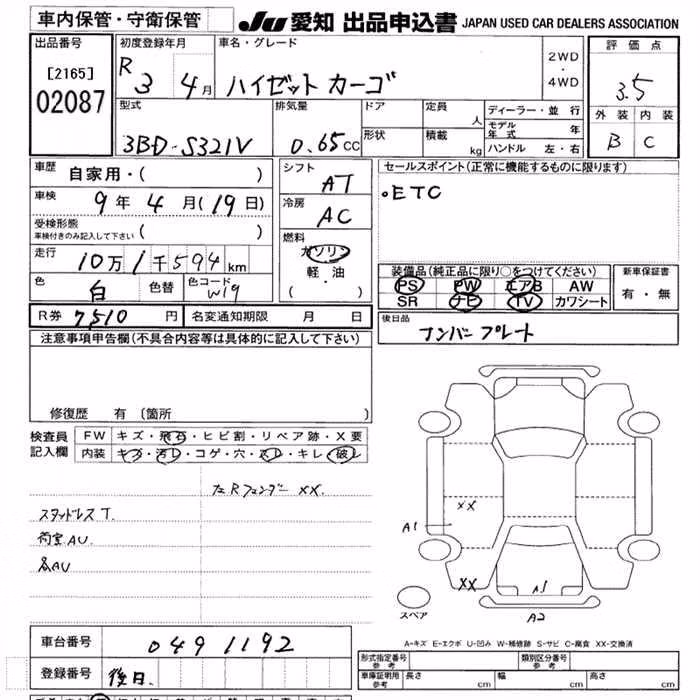 車内保管・守衛保管 JU 愛知 出品申込書 JAPAN USED CAR DEALERS ASSOCIATION
出品番号 [2165] 02087
初度登録年月 R 3 4月
車名・グレード ハイゼットカーゴ
2WD・4WD
評価点 3.5
外装 内装
B C
型式 3BD-S321V
排気量 0.65cc
ドア 形状
定員 人
積載 kg
ディーラー・並行
モデル年式 年
ハンドル 左・右
車歴 自家用・( )
車検 9年4月(19日)
受検形態 車検付きのみ記入して下さい ( )
走行 10万1千594km
色 白 色替 色コード W19
シフト AT
冷房 AC
燃料 ガソリン
軽油
・
( )
セールスポイント(正常に機能するものに限ります)
・ETC
装備品(純正品に限り○をつけてください)
PS PW エアB AW
SR ナビ TV カワシート
新車保証書
有・無
R券 7510円 名変通知期限 月 日
後日品 ナンバープレート
注意事項申告欄(不具合内容等は具体的に記入して下さい)
修復歴 有 〔箇所 〕
検査員記入欄
FW キズ・飛石・ヒビ割・リペア跡・X要
内装 キズ・汚レ・コゲ・穴・スレ・キレ・破レ
左Rフェンダー XX.
スタッドレスT.
荷室AU.
各AU
XX
A1
XX
A1
A2
スペア
A-キズ E-エクボ U-凹み W-補修跡 S-サビ C-腐食 XX-交換済
車台番号 0491192
登録番号 後日.
形式指定番号 参考
類別区分番号 参考
車庫証明用 参考 長さ cm 幅 cm 高さ cm